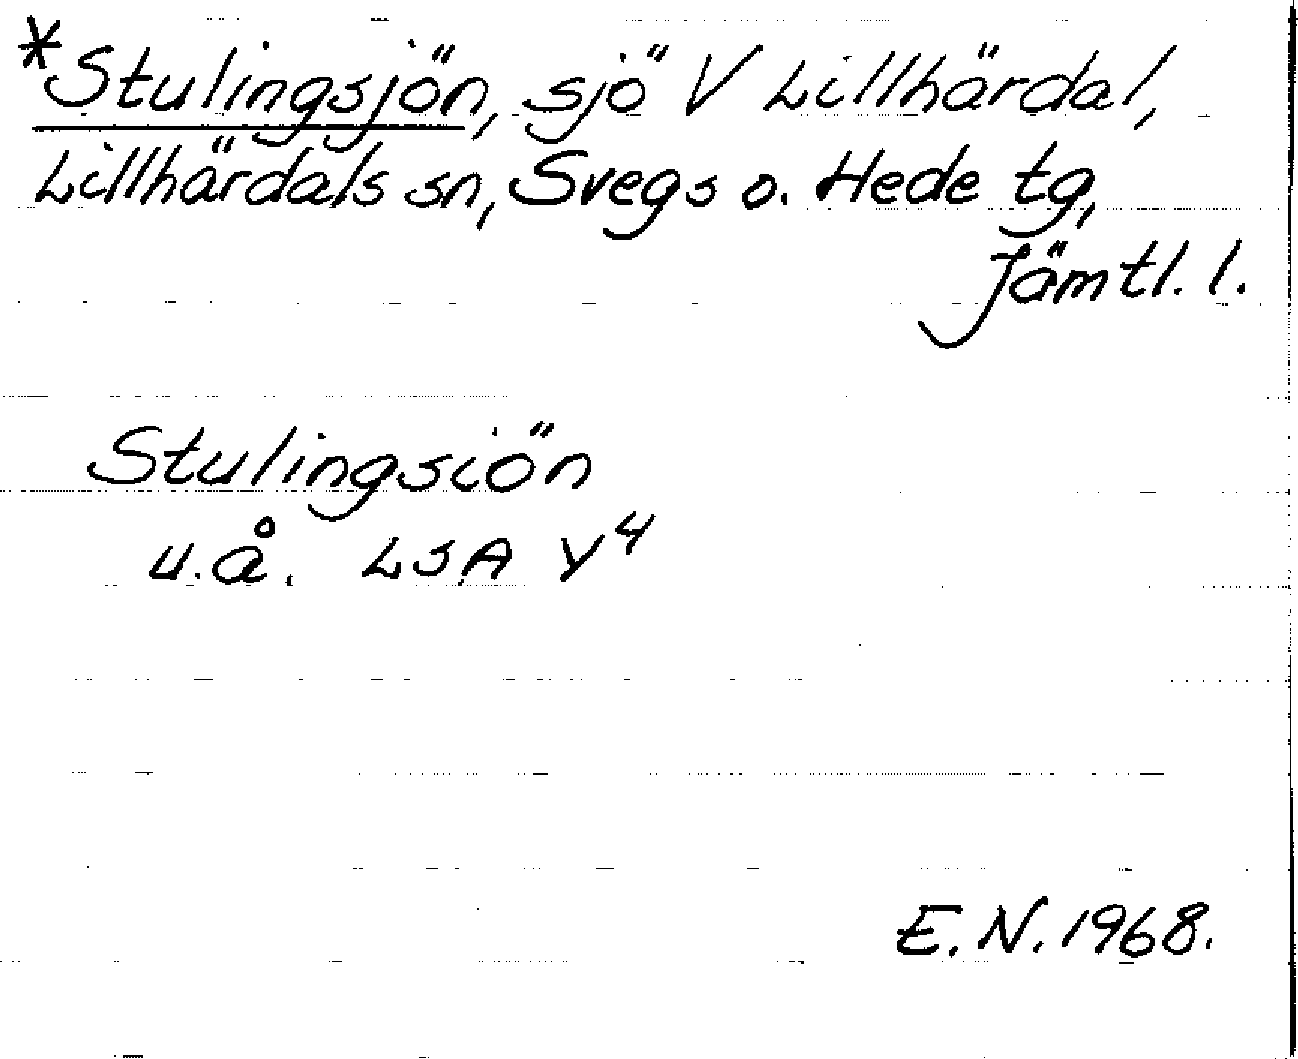 *Stulingsjön, sjö V Lillhärdal,
Lillhärdals sn, Svegs o. Hede tg,
Jämtl. l.
Stulingsiön
u.å. LSA Y4
E.N. 1968.